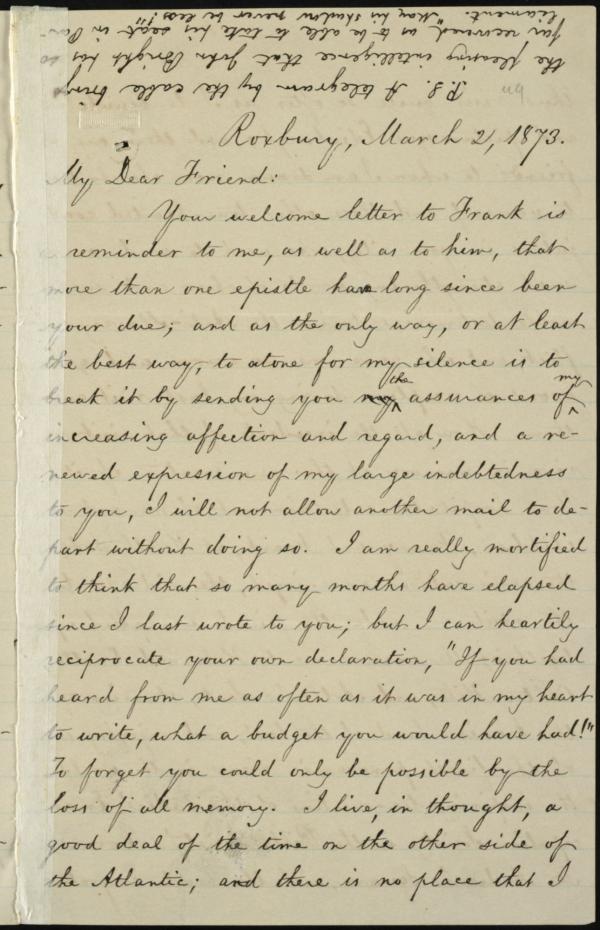 P.S. A telegram by the cable brings
the pleasing intelligence that John Bright has so
far recovered as to be able to take his seat in Par-
liament. May his shadow never be less!"
Roxbury, March 2, 1873.
My Dear Friend:
Your welcome letter to Frank is
a reminder to me, as well as to him, that
more than one epistle has long since been
your due; and as the only way, or at least
the best way, to atone for my silence is to
break it by sending you my the assurances of my
increasing affection and regard, and a re-
newed expression of my large indebtedness
to you, I will not allow another mail to de-
part without doing so. I am really mortified
to think that so many months have elapsed
since I last wrote to you; but I can heartily
reciprocate your own declaration, "If you had
heard from me as often as it was in my heart
to write, what a budget you would have had!"
To forget you could only be possible by the
loss of all memory. I live, in thought, a
good deal of the time on the other side of
the Atlantic; and there is no place that I